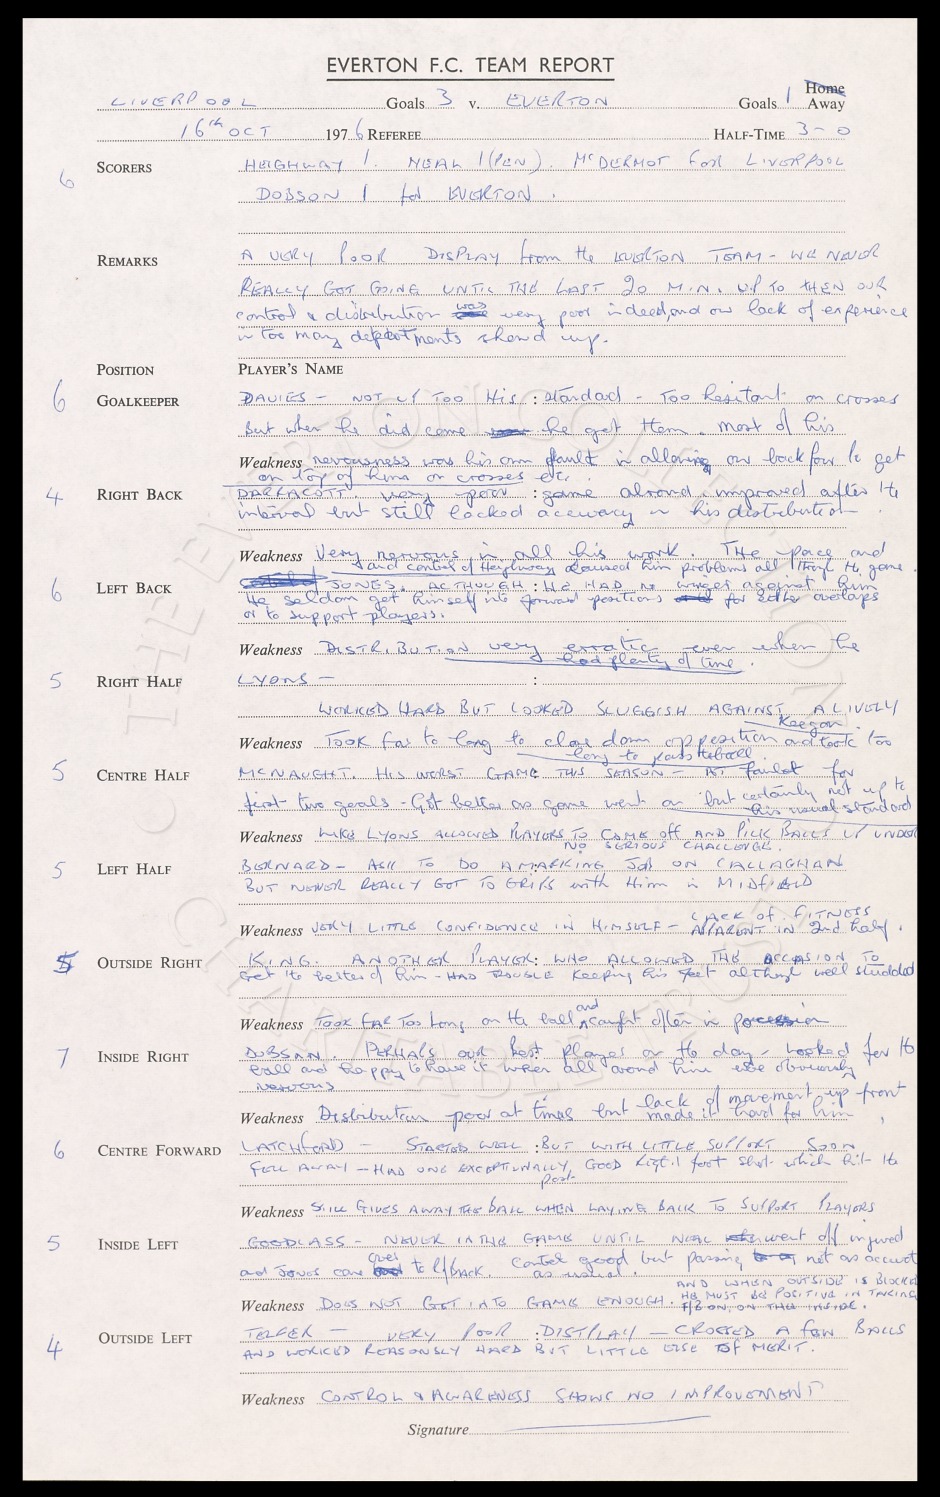 EVERTON F.C. TEAM REPORT
LIVERPOOL Goals 3 v. EVERTON Goals 1 Home Away
16th OCT 1976 REFEREE HALF-TIME 3-0
6 SCORERS HEIGHWAY 1. NEAL 1 (PEN). McDERMOT for LIVERPOOL
DOBSON 1 for EVERTON.
REMARKS A VERY POOR DISPLAY from the EVERTON TEAM - WE NEVER
REALLY GOT GOING UNTIL THE LAST 20 MIN. UP TO THEN OUR
control & distribution was very poor indeed, and our lack of experience
in too many departments showd up.
POSITION PLAYER'S NAME
6 GOALKEEPER DAVIES - NOT UP TOO His : standard - Too hesitant on crosses
But when he did come he got them. most of his
Weakness nervousness was his own fault in allowing our back four to get
on top of him on crosses etc.
4 RIGHT BACK DARRACOTT. very poor : game alround. improved after the
interval but still lacked accuracy in his distribution
Weakness Very nervous in all his work. THE pace and
and control of Heighway caused him problems all through the game.
6 LEFT BACK JONES. ALTHOUGH : HE HAD no winger against him
He seldom got himself into forward positions for either overlaps
or to support players.
Weakness DISTRIBUTION very erratic even when he
had plenty of time.
5 RIGHT HALF LYONS - :
WORKED HARD BUT LOOKED SLUGGISH AGAINST A LIVELY
Keegan.
Weakness TOOK far to long to close down opposition and took too
long to pass the ball
5 CENTRE HALF MCNAUGHT. HIS WORST GAME THIS SEASON - AT fault for
first two goals - Got better as game went on but certainly not up to
his usual standard
Weakness LIKE LYONS ALLOWED PLAYERS TO COME off AND PICK BALLS UP UNDER
NO SERIOUS CHALLENGE.
5 LEFT HALF BERNARD - ASK TO DO A MARKING JOB ON CALLAGHAN
BUT NEVER REALLY GOT TO GRIPS with Him in MIDFIELD
Weakness VERY LITTLE CONFIDENCE IN HIMSELF - LACK OF FITNESS
APPARENT IN 2nd half.
5 OUTSIDE RIGHT KING. ANOTHER PLAYER : WHO ALLOWED THE OCCASION TO
Get the better of him - HAD TROUBLE Keeping his feet although well studded
Weakness TOOK FAR TOO Long on the ball and caught often in possession
7 INSIDE RIGHT DOBSON. PERHAPS our best : Player on the day - Looked for the
ball and happy to have it when all around him were obviously
nervous
Weakness Distribution poor at times but lack of movement up front
made it hard for him
6 CENTRE FORWARD LATCHFORD - STARTED WELL : BUT WITH LITTLE SUPPORT SOON
FELL AWAY - HAD ONE EXCEPTIONALLY GOOD Right foot shot which hit the
post
Weakness STILL GIVES AWAY THE BALL WHEN LAYING BACK TO SUPPORT PLAYERS
5 INSIDE LEFT GOODLASS - NEVER IN THE GAME UNTIL NEAL went off injured
and JONES came over to L/BACK. Control good but passing not as accurate
as usual.
AND WHEN OUTSIDE IS BLOCKED
Weakness DOES NOT GET INTO GAME ENOUGH. HE MUST BE POSITIVE IN TAKING
F/B ON, ON THE INSIDE.
4 OUTSIDE LEFT TELFER - VERY POOR : DISTPLAY - CROSSED A few BALLS
AND WORKED REASONSLY HARD BUT LITTLE ELSE OF MERIT.
Weakness CONTROL & AWARENESS SHOWS NO IMPROVEMENT
Signature
THE EVERTON COLLECTION
CHARITABLE TRUST